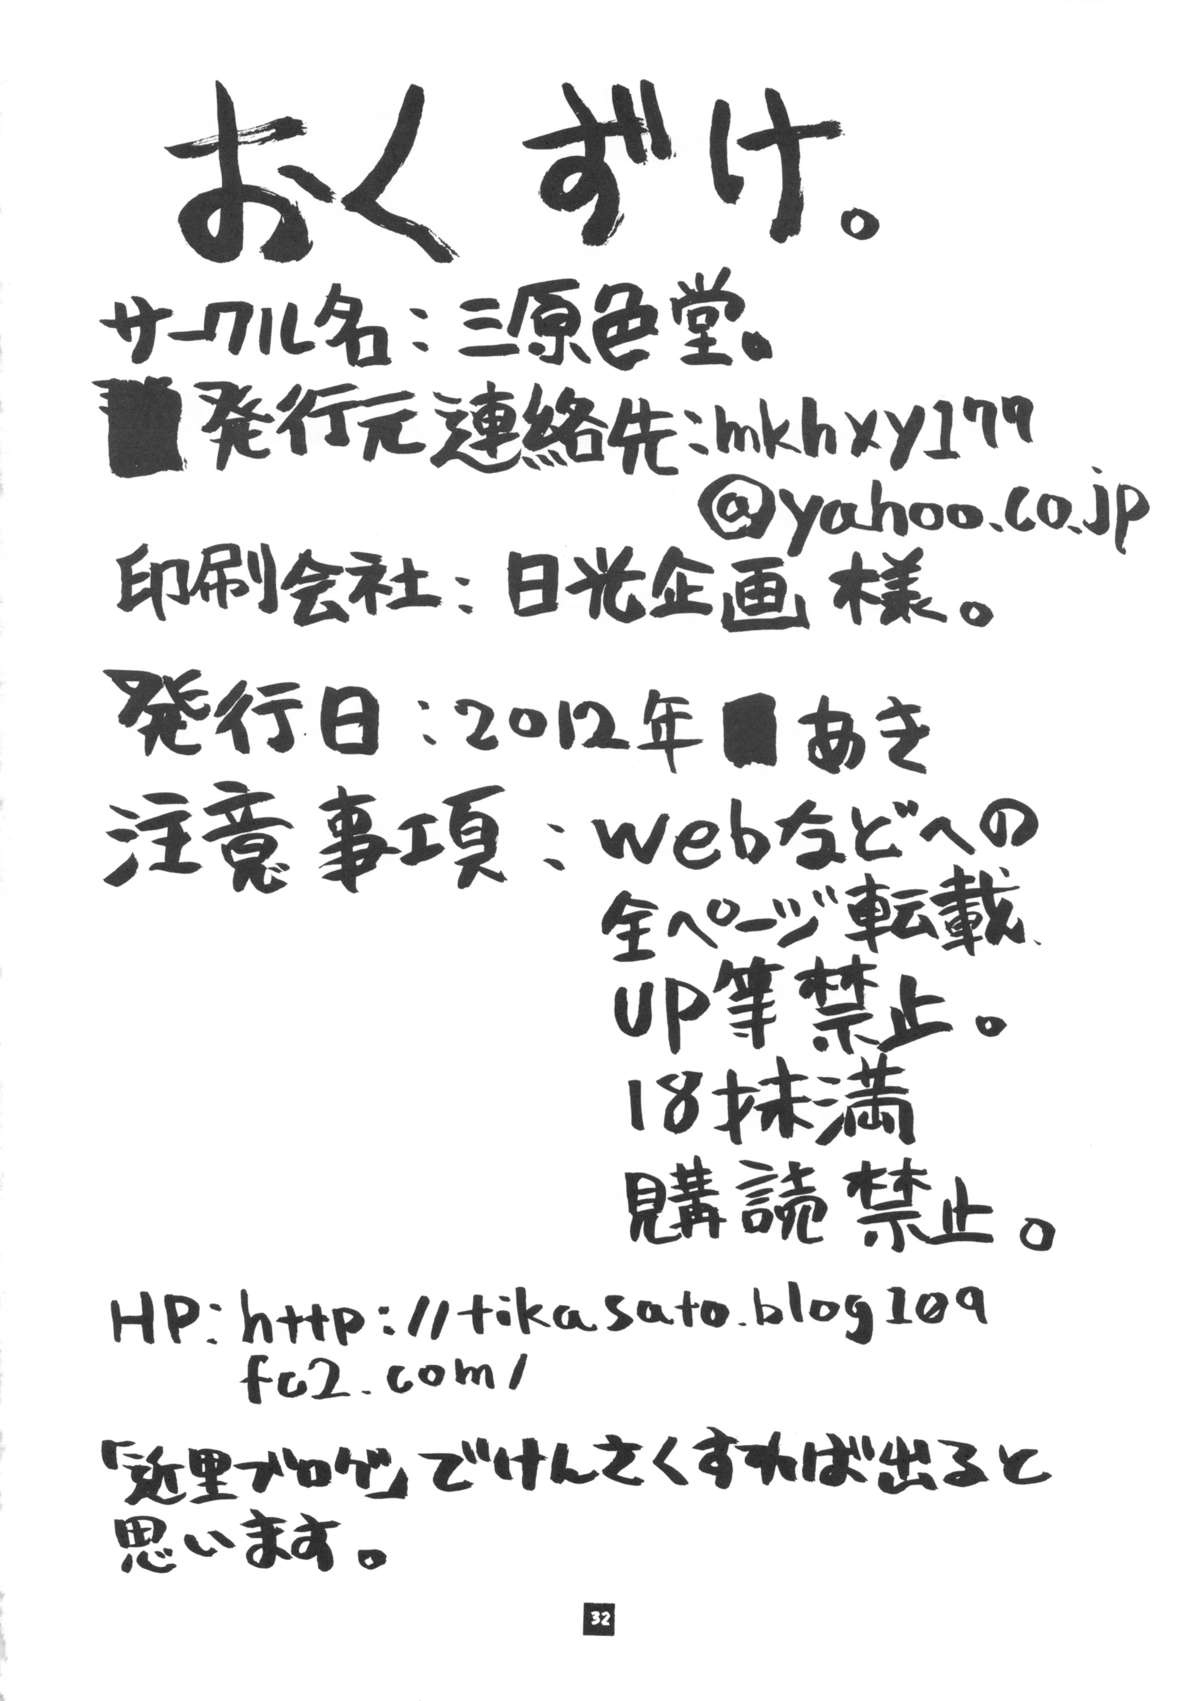 おくずけ。
サークル名：三原色堂。
発行元連絡先：mkhxy179
@yahoo.co.jp
印刷会社：日光企画 様。
発行日：2012年 あき
注意事項：webなどへの
全ページ転載
UP等禁止。
18才未満
購読禁止。
HP：http://tikasato.blog109
fc2.com/
「近里ブログ」でけんさくすれば出ると
思います。
32